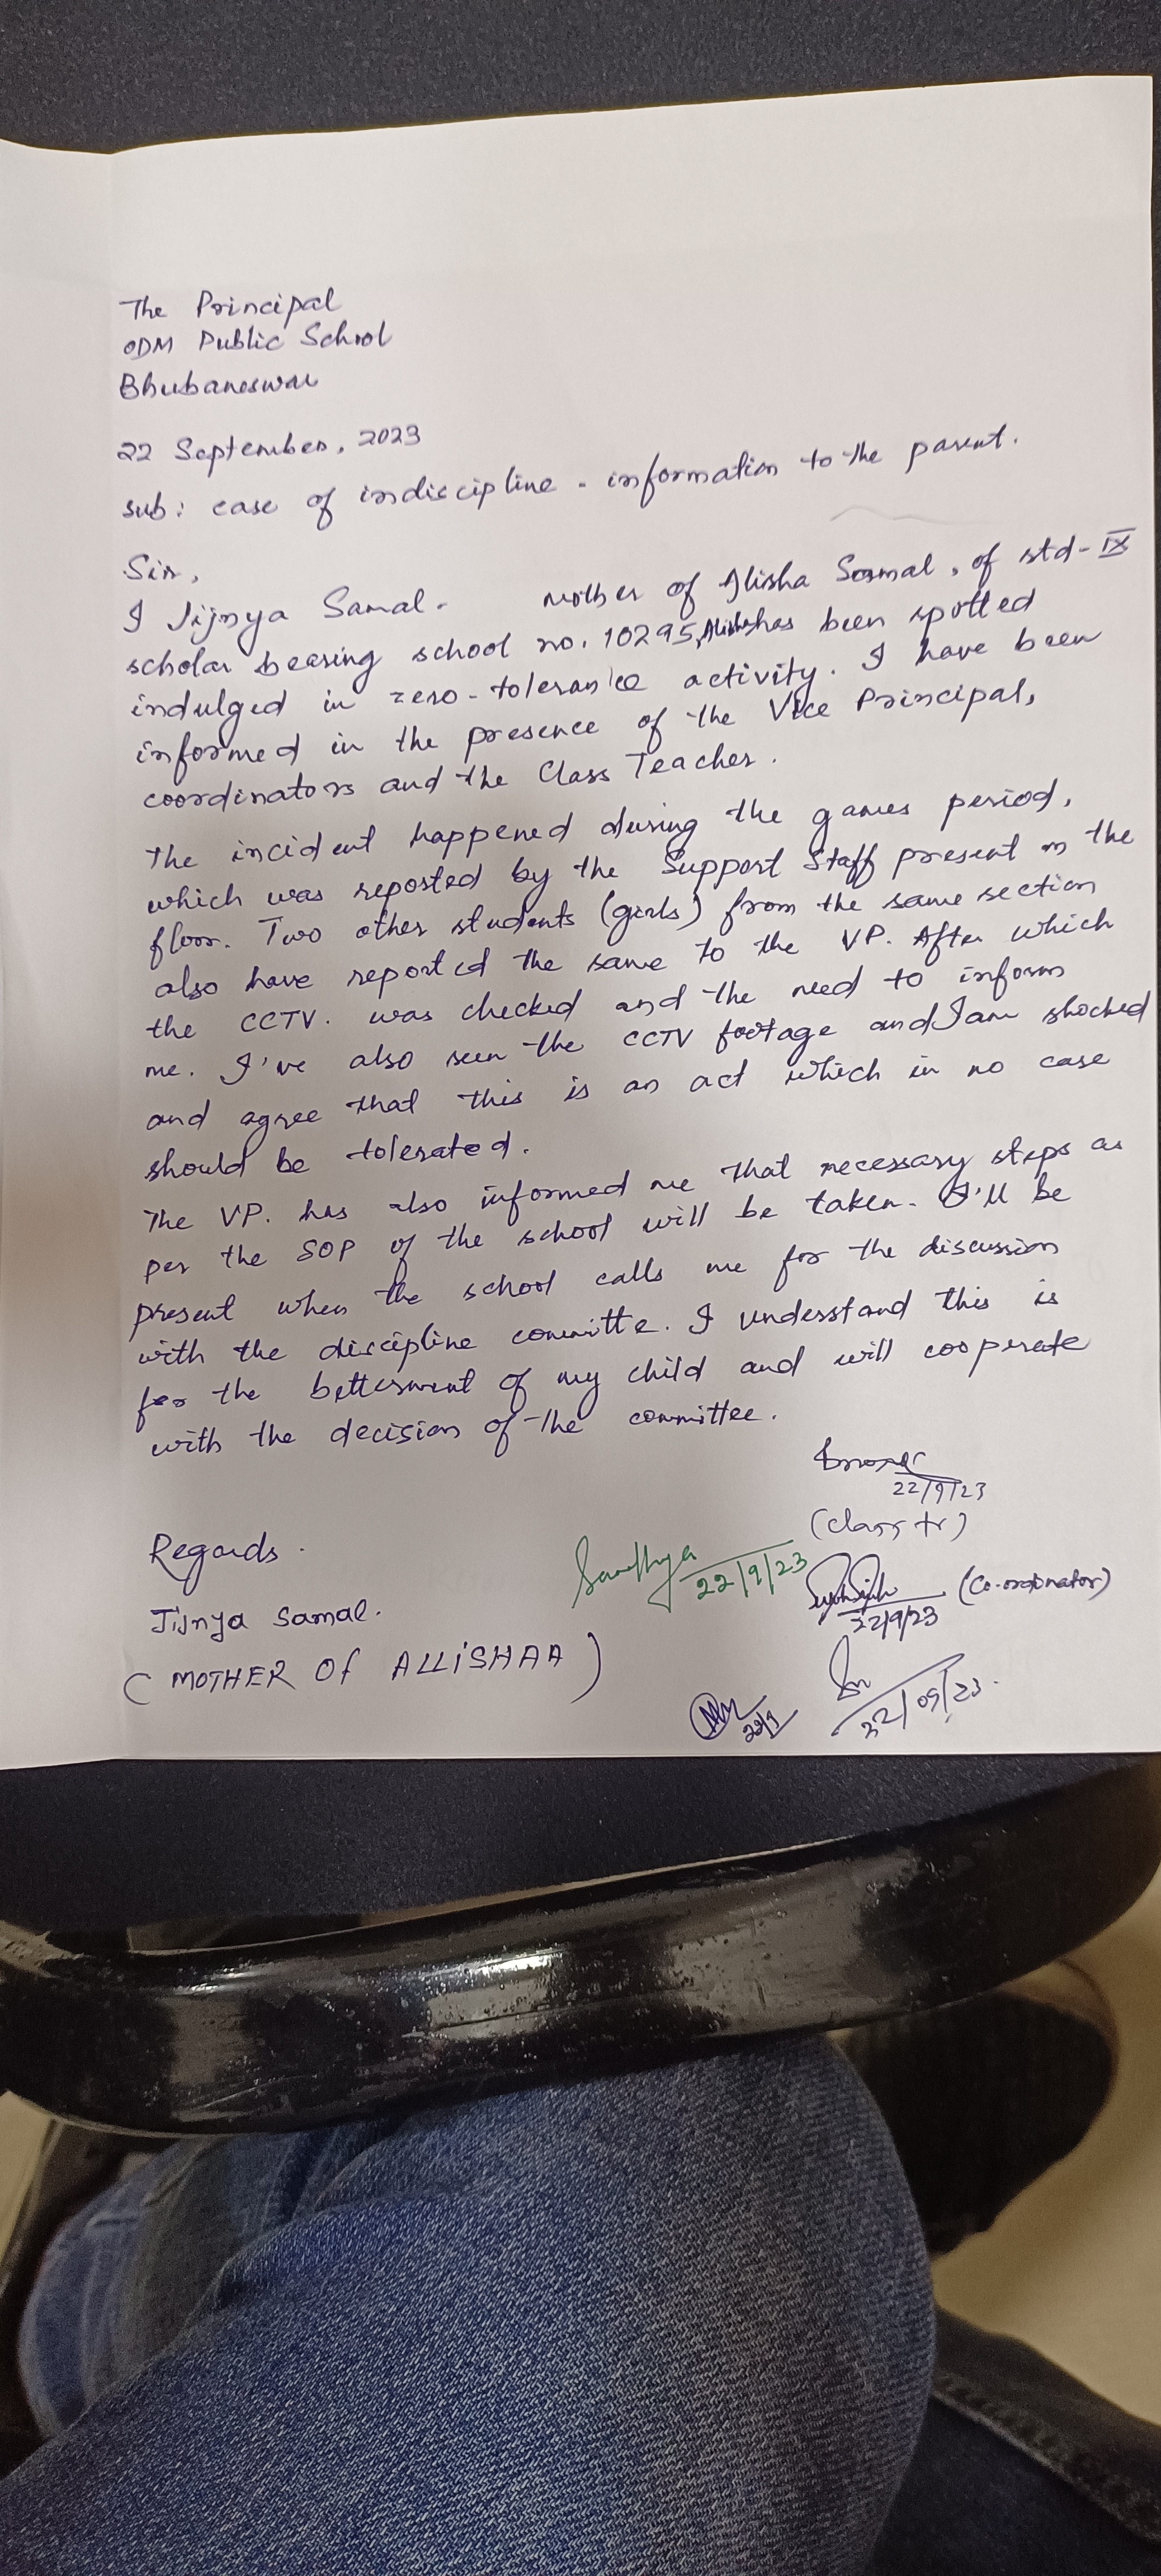 The Principal
ODM Public School
Bhubaneswar
22 September, 2023
sub: case of indiscipline - information to the parent.
Sir,
I Jijnya Samal. mother of Alisha Samal, of std-IX
scholar bearing school no. 10295, Alisha has been spotted
indulged in zero-tolerance activity. I have been
informed in the presence of the Vice Principal,
coordinators and the Class Teacher.
The incident happened during the games period,
which was reported by the Support Staff present on the
floor. Two other students (girls) from the same section
also have reported the same to the VP. After which
the CCTV. was checked and the need to inform
me. I've also seen the CCTV footage and I am shocked
and agree that this is an act which in no case
should be tolerated.
The VP. has also informed me that necessary steps as
per the SOP of the school will be taken. I'll be
present when the school calls me for the discussion
with the discipline committe. I understand this is
for the betterment of my child and will cooperate
with the decision of the committee.
22/9/23
(class tr)
Regards.
Sandhya
22/9/23
(Co-ordinator)
22/9/23
Jijnya Samal.
(MOTHER Of ALLiSHAA)
22/9
22/09/23.